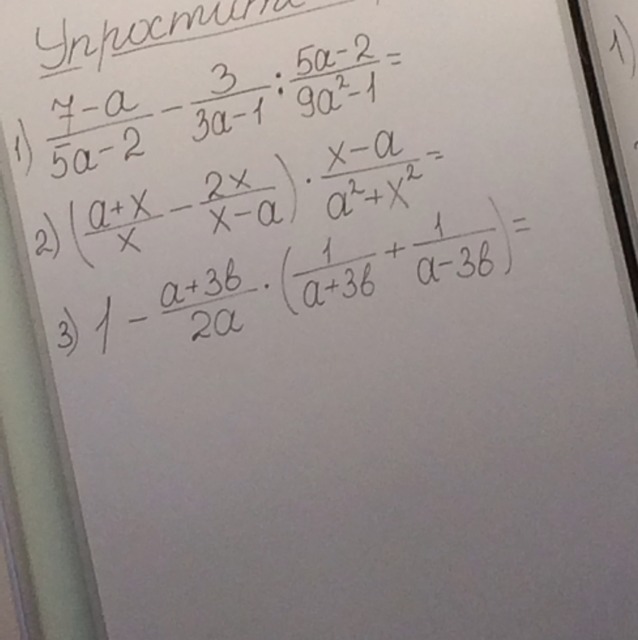 Упростить
1) \frac{7-a}{5a-2} - \frac{3}{3a-1} : \frac{5a-2}{9a^2-1} =
2) (\frac{a+x}{x} - \frac{2x}{x-a}) \cdot \frac{x-a}{a^2+x^2} =
3) 1 - \frac{a+3b}{2a} \cdot (\frac{1}{a+3b} + \frac{1}{a-3b}) =
1)